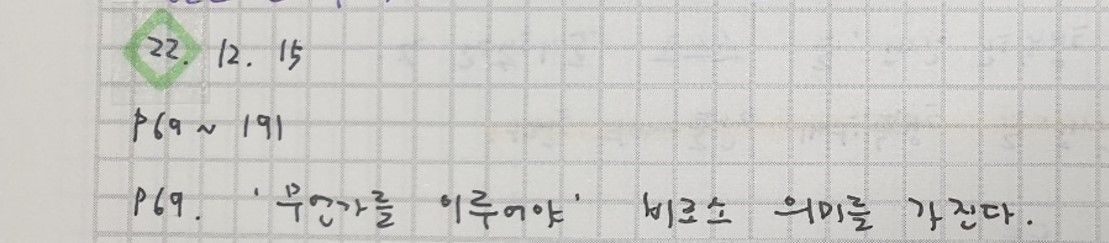 22. 12. 15
P69 ~ 191
P69. '무언가를 이루어야' 비로소 의미를 가진다.